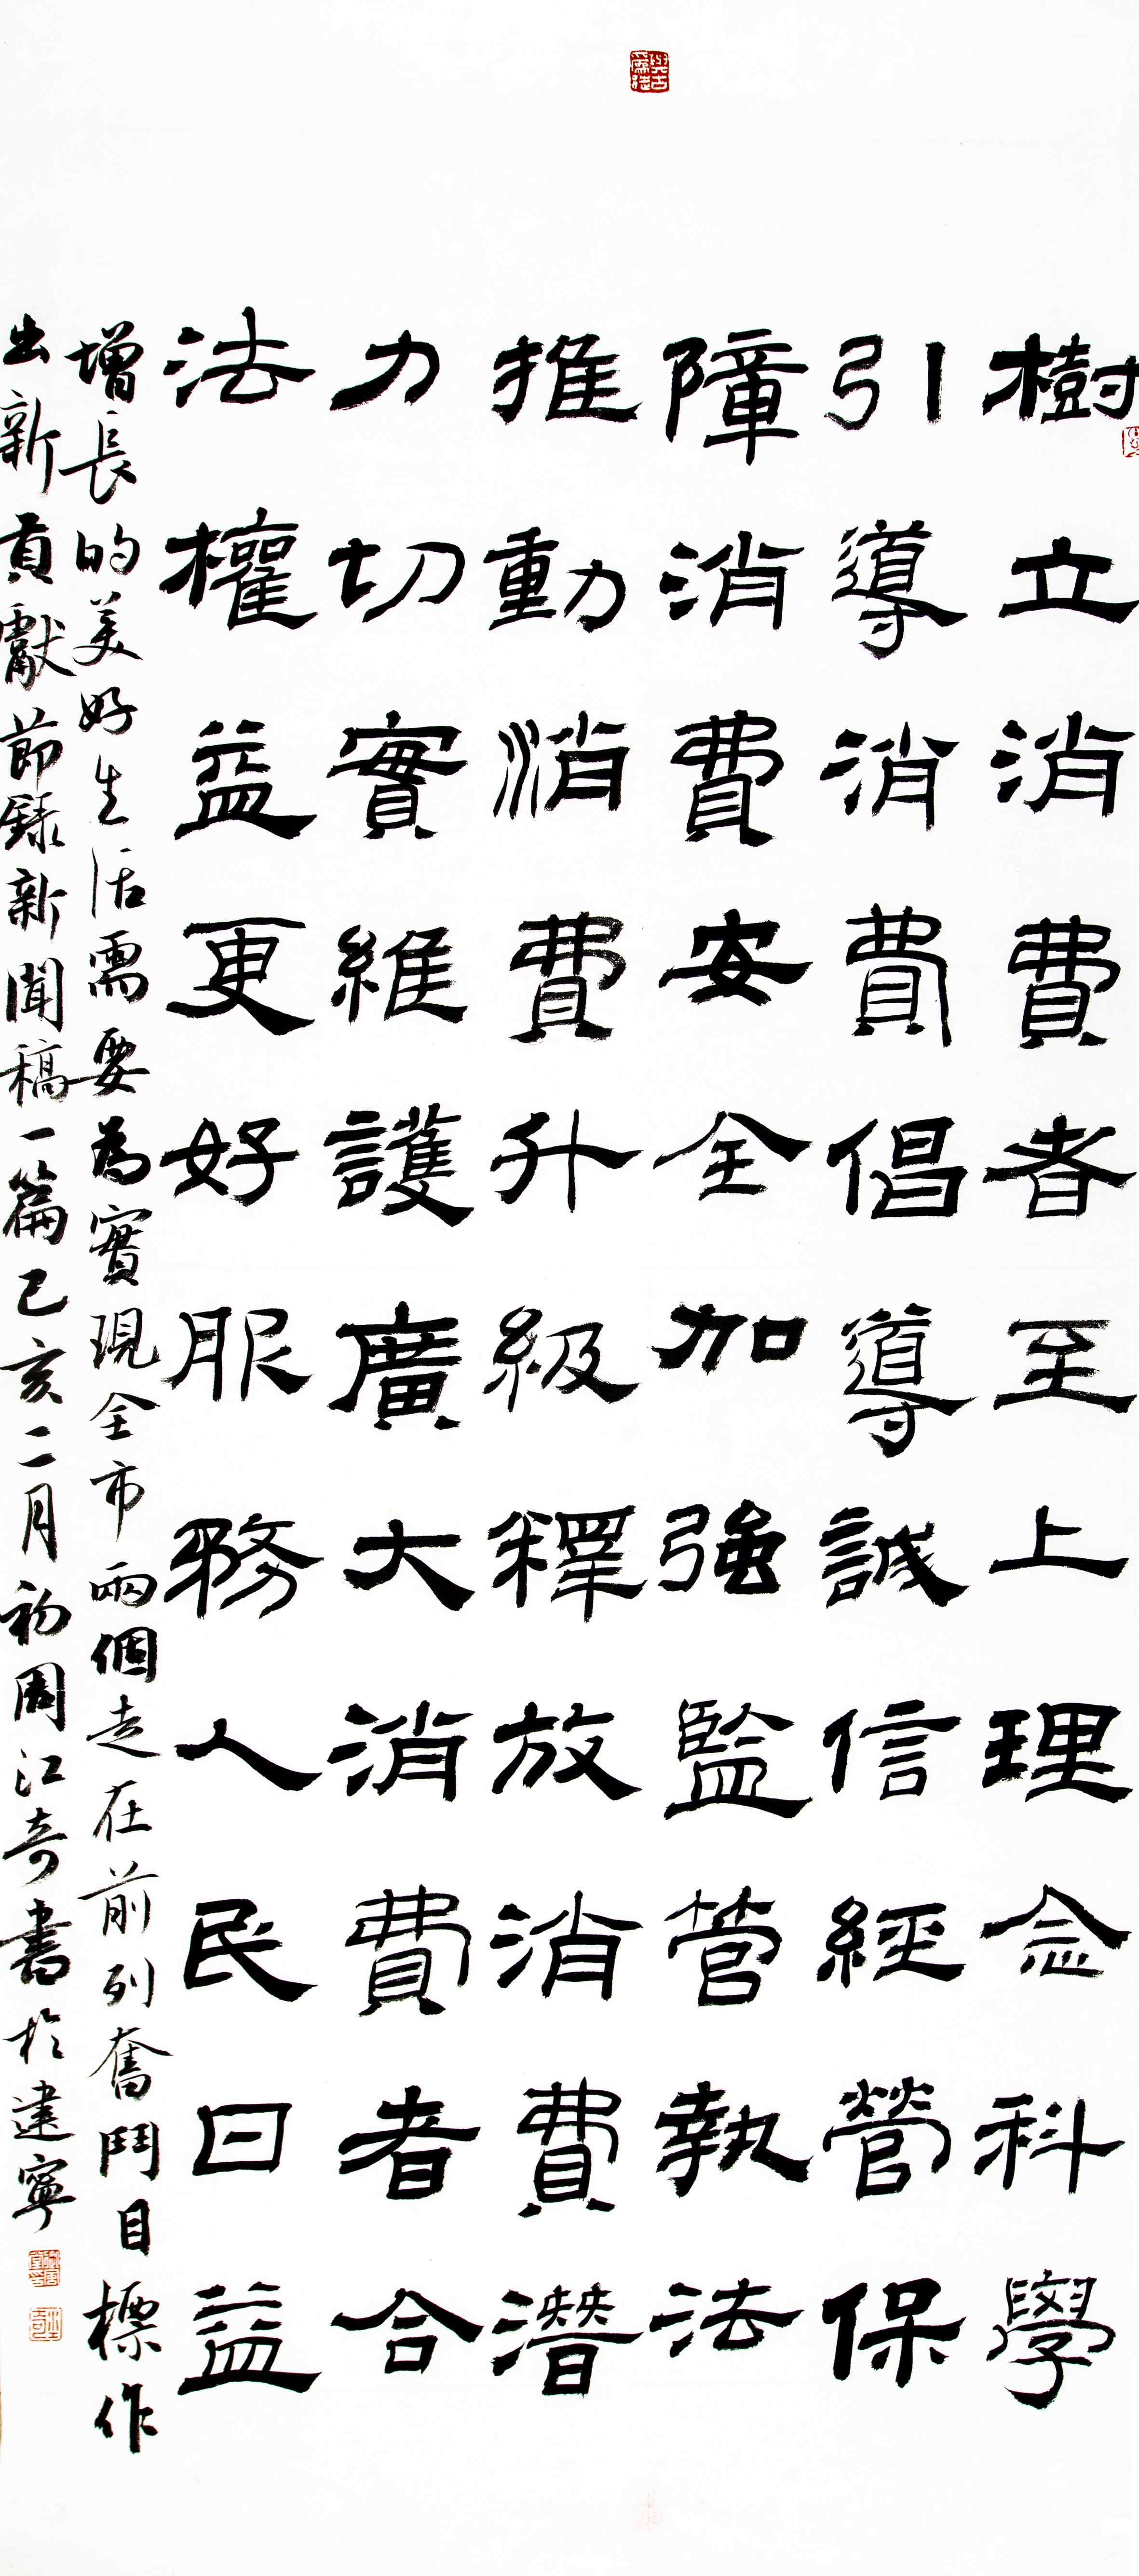 樹立消費者至上理念科學
引導消費倡導誠信經營保
障消費安全加強監管執法
推動消費升級釋放消費潛
力切實維護廣大消費者合
法權益更好服務人民日益
增長的美好生活需要為實現全市兩個走在前列奮鬥目標作
出新貢獻節錄新聞稿一篇己亥二月初周江奇書於建寧